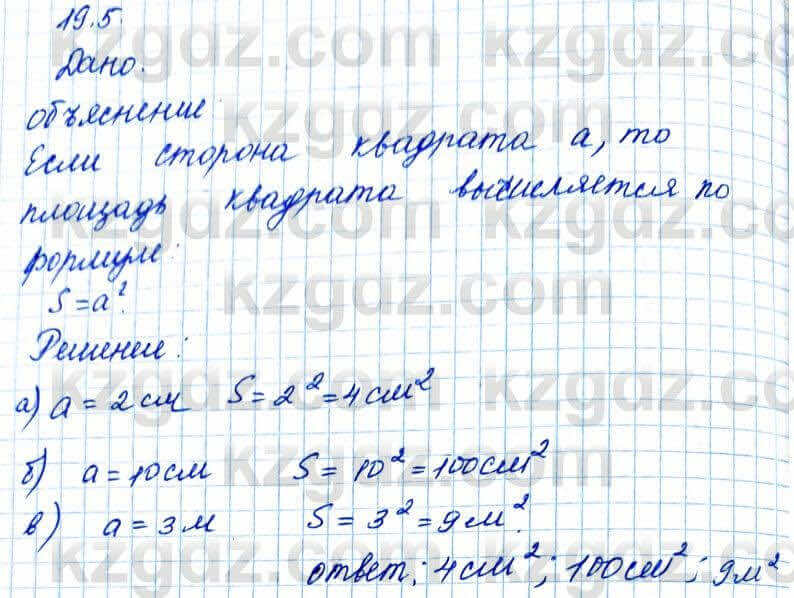 19.5.
Дано.
объяснение
Если сторона квадрата a, то
площадь квадрата вычисляется по
формуле:
S=a².
Решение:
а) a = 2 см S = 2² = 4 см²
б) a = 10 см S = 10² = 100 см²
в) a = 3 м S = 3² = 9 м².
ответ; 4 см²; 100 см²; 9 м²
kzgdz.com kzgdz.com
kzgdz.com
kzgdz.com kzgdz.com
kzgdz.com
kzgdz.com kzgdz.com
kzgdz.com
kzgdz.com kzgdz.com